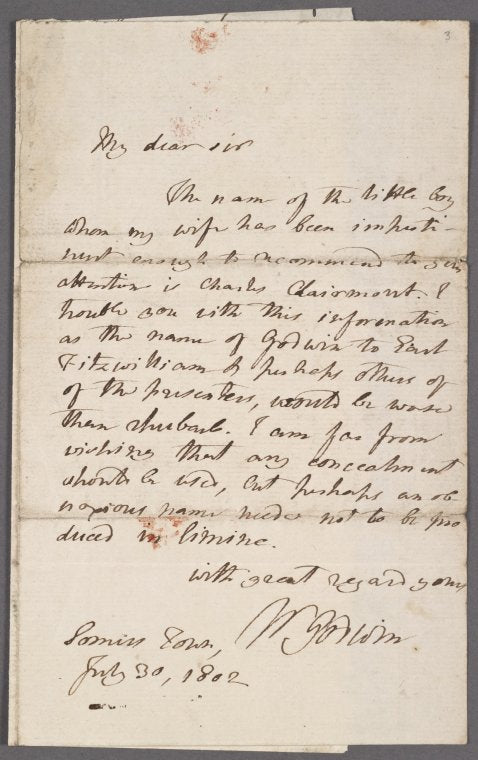 3
My dear sir
The name of the little boy
whom my wife has been imperti-
nent enough to recommend to your
attention is Charles Clairmont. I
trouble you with this information
as the name of Godwin to Earl
Fitzwilliam & perhaps others of
of the presenters, would be worse
than rhubarb. I am far from
wishing that any concealment
should be used, but perhaps an ob
noxious name needs not to be pro
duced in limine.
with great regard yours
W Godwin
Somers Town,
July 30, 1802